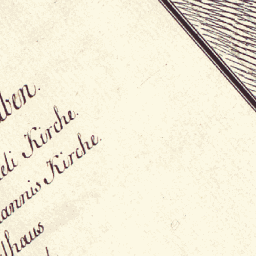 ben.
eli Kirche.
annis Kirche.
thaus